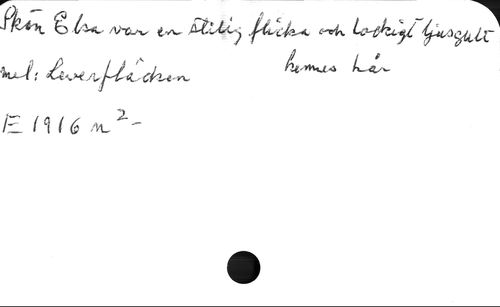 Skön Elsa var en ståtlig flicka och lockigt ljusgult
hennes hår
mel: Leverfläcken
E 1916 n 2 -